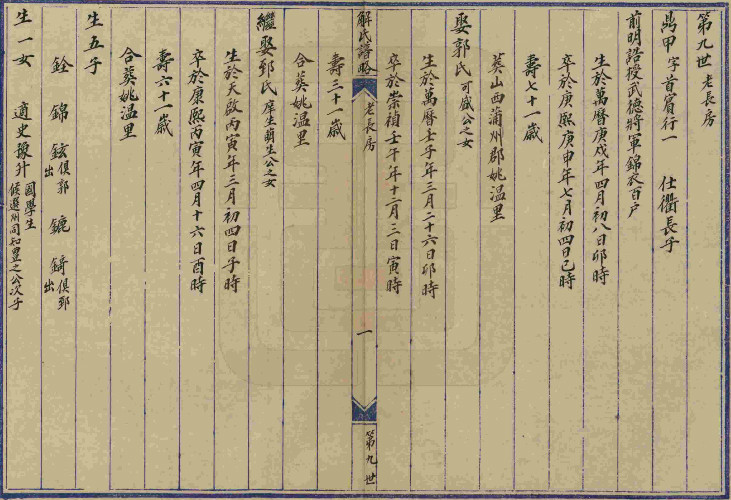 第九世 老長房
鼎甲 字首賓行一 仕衢長子
前明誥授武德將軍錦衣百户
生於萬曆庚戌年四月初八日卯時
卒於康熙庚申年七月初四日巳時
壽七十一歲
葬山西蒲州郡姚温里
娶郭氏 可威公之女
生於萬曆壬子年三月二十六日卯時
卒於崇禎壬午年十二月三日寅時
解氏譜略 老長房 一 第九世
壽三十一歲
合葬姚温里
繼娶郅氏 庠生萌生公之女
生於天啟丙寅年三月初四日子時
卒於康熙丙寅年四月十六日酉時
壽六十一歲
合葬姚温里
生五子
銓 錦 鉉 俱郭出 鑣 錡 俱郅出
生一女 適史豫升 國學生候選州同知豊之公次子